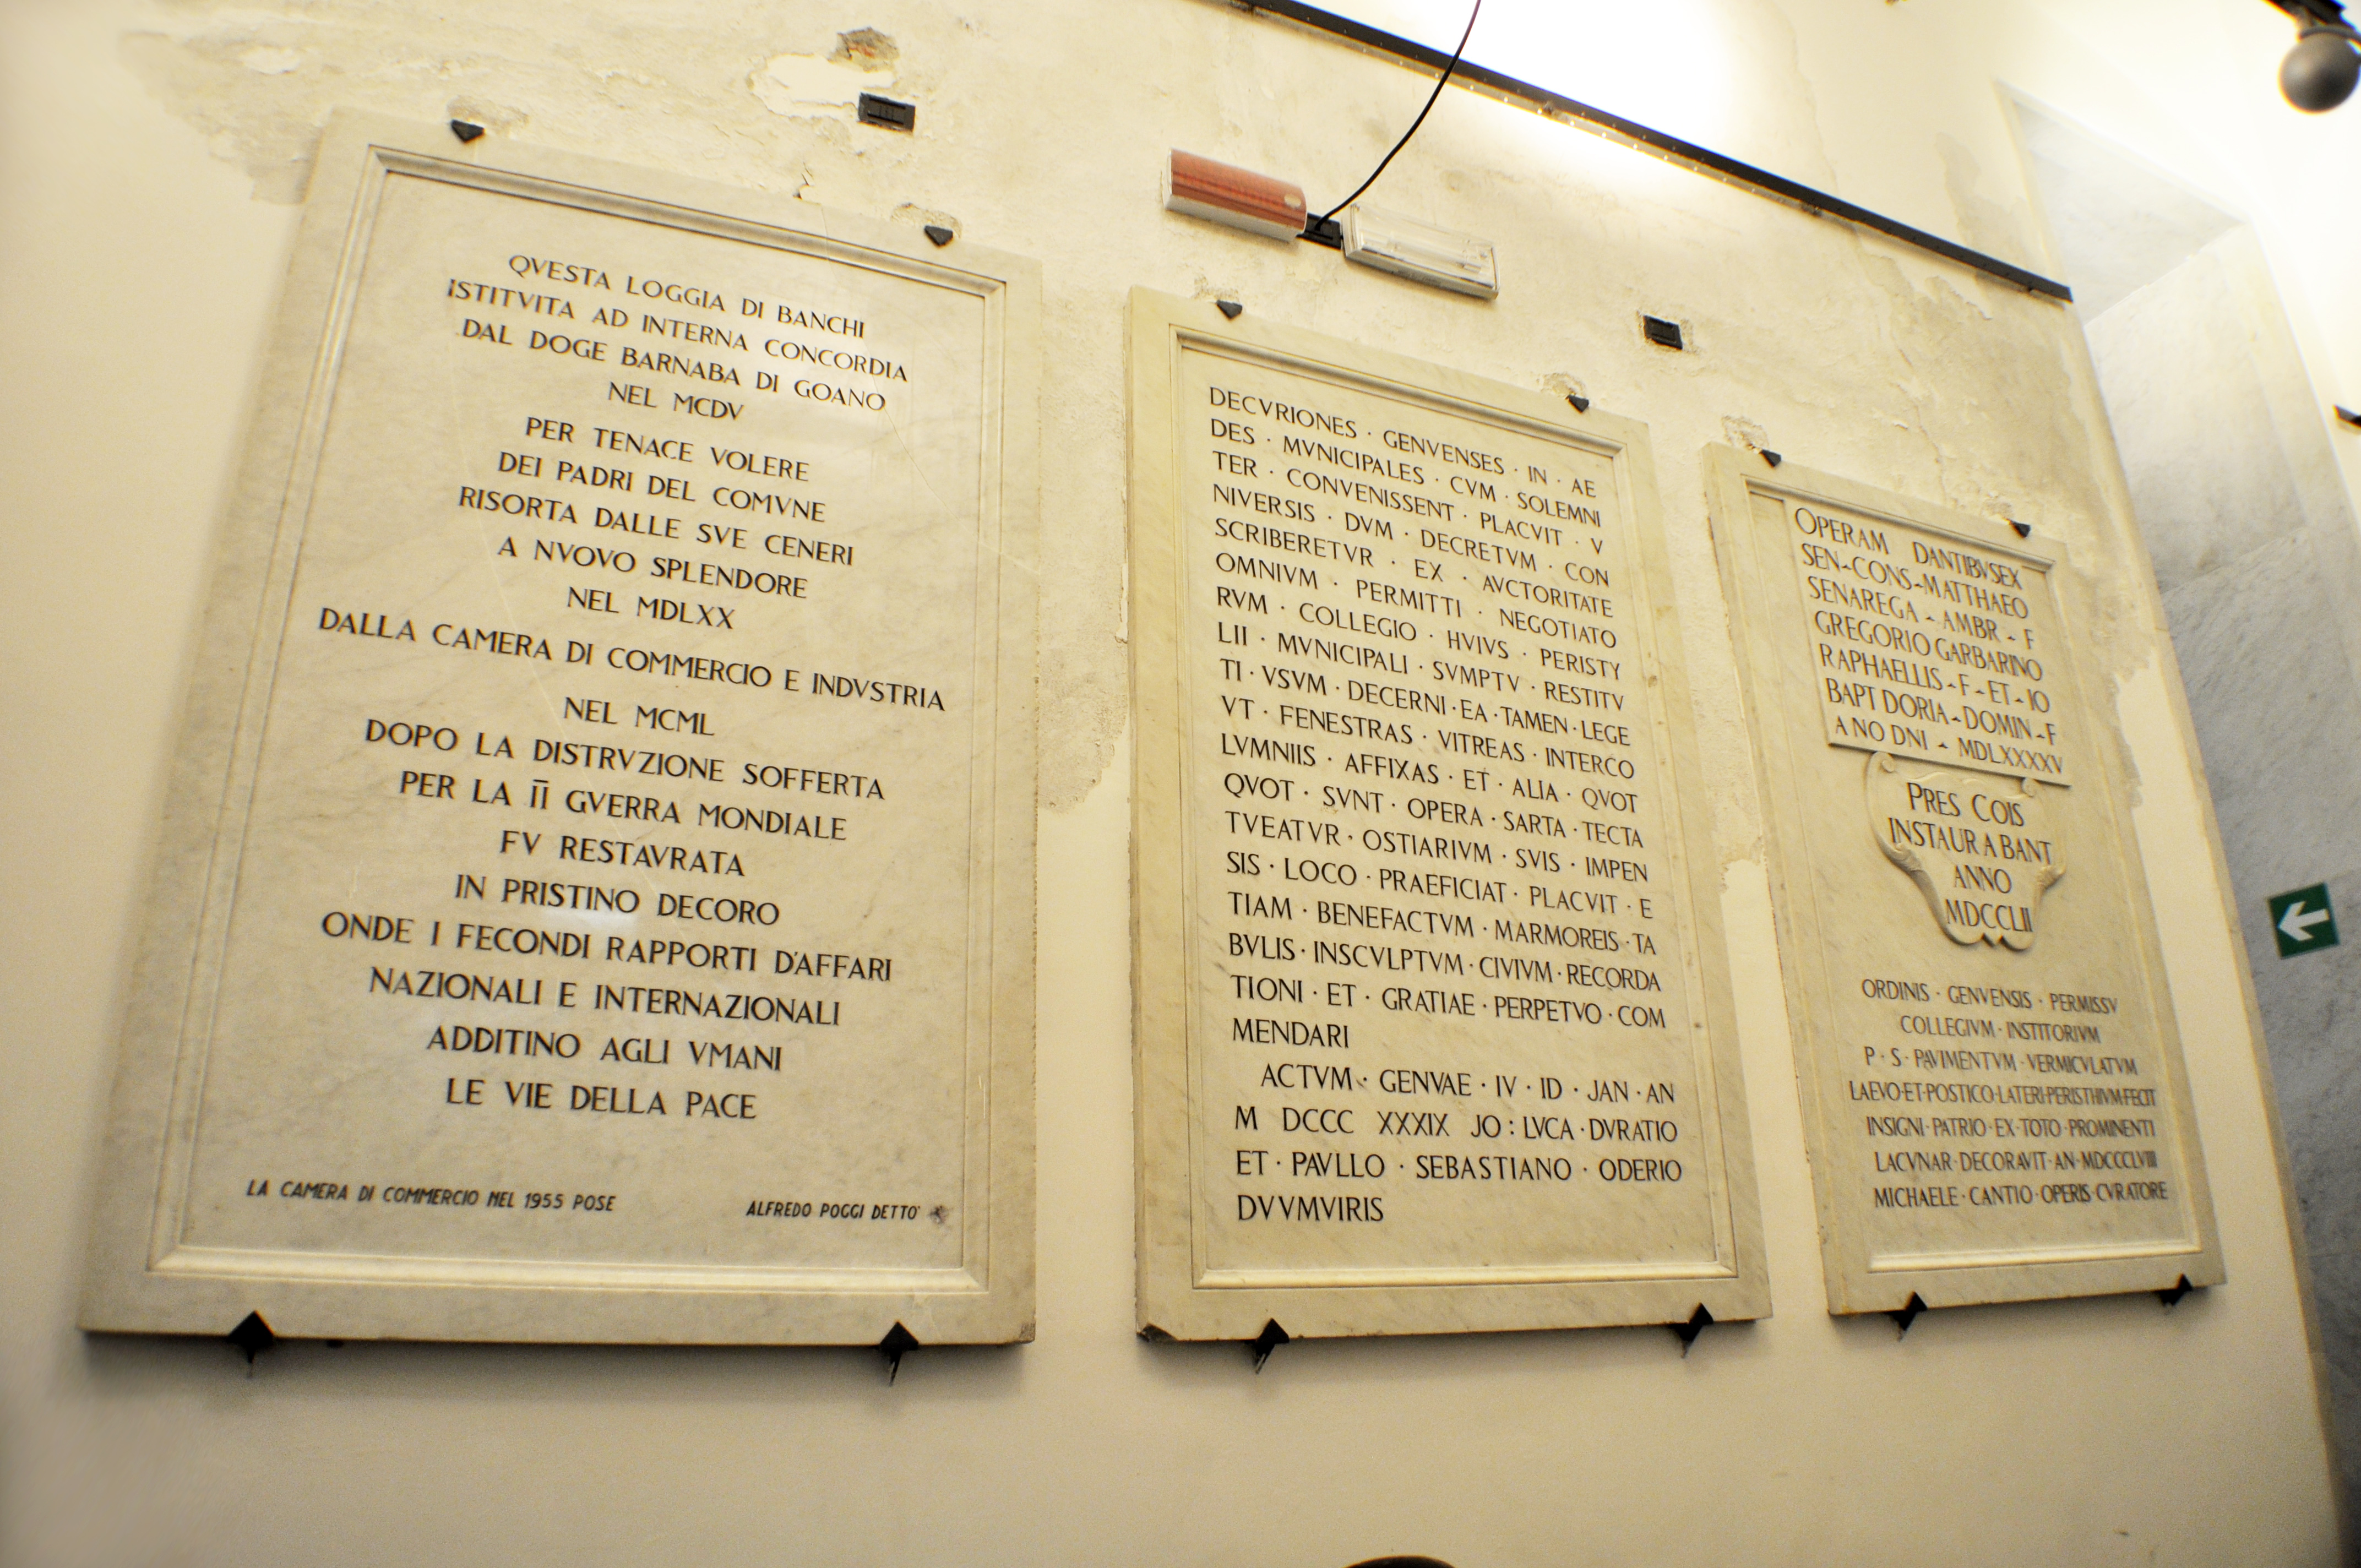 QVESTA LOGGIA DI BANCHI
ISTITVITA AD INTERNA CONCORDIA
DAL DOGE BARNABA DI GOANO
NEL MCDV
PER TENACE VOLERE
DEI PADRI DEL COMVNE
RISORTA DALLE SVE CENERI
A NVOVO SPLENDORE
NEL MDLXX
DALLA CAMERA DI COMMERCIO E INDVSTRIA
NEL MCML
DOPO LA DISTRVZIONE SOFFERTA
PER LA II GVERRA MONDIALE
FV RESTAVRATA
IN PRISTINO DECORO
ONDE I FECONDI RAPPORTI D'AFFARI
NAZIONALI E INTERNAZIONALI
ADDITINO AGLI VMANI
LE VIE DELLA PACE
LA CAMERA DI COMMERCIO NEL 1955 POSE
ALFREDO POGGI DETTO'
DECVRIONES · GENVENSES · IN · AE
DES · MVNICIPALES · CVM · SOLEMNI
TER · CONVENISSENT · PLACVIT · V
NIVERSIS · DVM · DECRETVM · CON
SCRIBERETVR · EX · AVCTORITATE
OMNIVM · PERMITTI · NEGOTIATO
RVM · COLLEGIO · HVIVS · PERISTY
LII · MVNICIPALI · SVMPTV · RESTITV
TI · VSVM · DECERNI · EA · TAMEN · LEGE
VT · FENESTRAS · VITREAS · INTERCO
LVMNIIS · AFFIXAS · ET · ALIA · QVOT
QVOT · SVNT · OPERA · SARTA · TECTA
TVEATVR · OSTIARIVM · SVIS · IMPEN
SIS · LOCO · PRAEFICIAT · PLACVIT · E
TIAM · BENEFACTVM · MARMOREIS · TA
BVLIS · INSCVLPTVM · CIVIVM · RECORDA
TIONI · ET · GRATIAE · PERPETVO · COM
MENDARI
ACTVM · GENVAE · IV · ID · JAN · AN
M DCCC XXXIX JO : LVCA · DVRATIO
ET · PAVLLO · SEBASTIANO · ODERIO
DVVMVIRIS
OPERAM DANTIBVSEX
SEN~CONS~MATTHAEO
SENAREGA ~ AMBR ~ F
GREGORIO GARBARINO
RAPHAELLIS ~ F ~ ET ~ IO
BAPT DORIA ~ DOMIN ~ F
ANO DNI ~ MDLXXXXV
PRES COIS
INSTAURABANT
ANNO
MDCCLII
ORDINIS · GENVENSIS · PERMISSV
COLLEGIVM · INSTITORIVM
P · S · PAVIMENTVM · VERMICVLATVM
LAEVO·ET·POSTICO·LATERI·PERISTHIVM·FECIT
INSIGNI · PATRIO · EX · TOTO · PROMINENTI
LACVNAR · DECORAVIT · AN · MDCCCLVIII
MICHAELE · CANTIO · OPERIS · CVRATORE